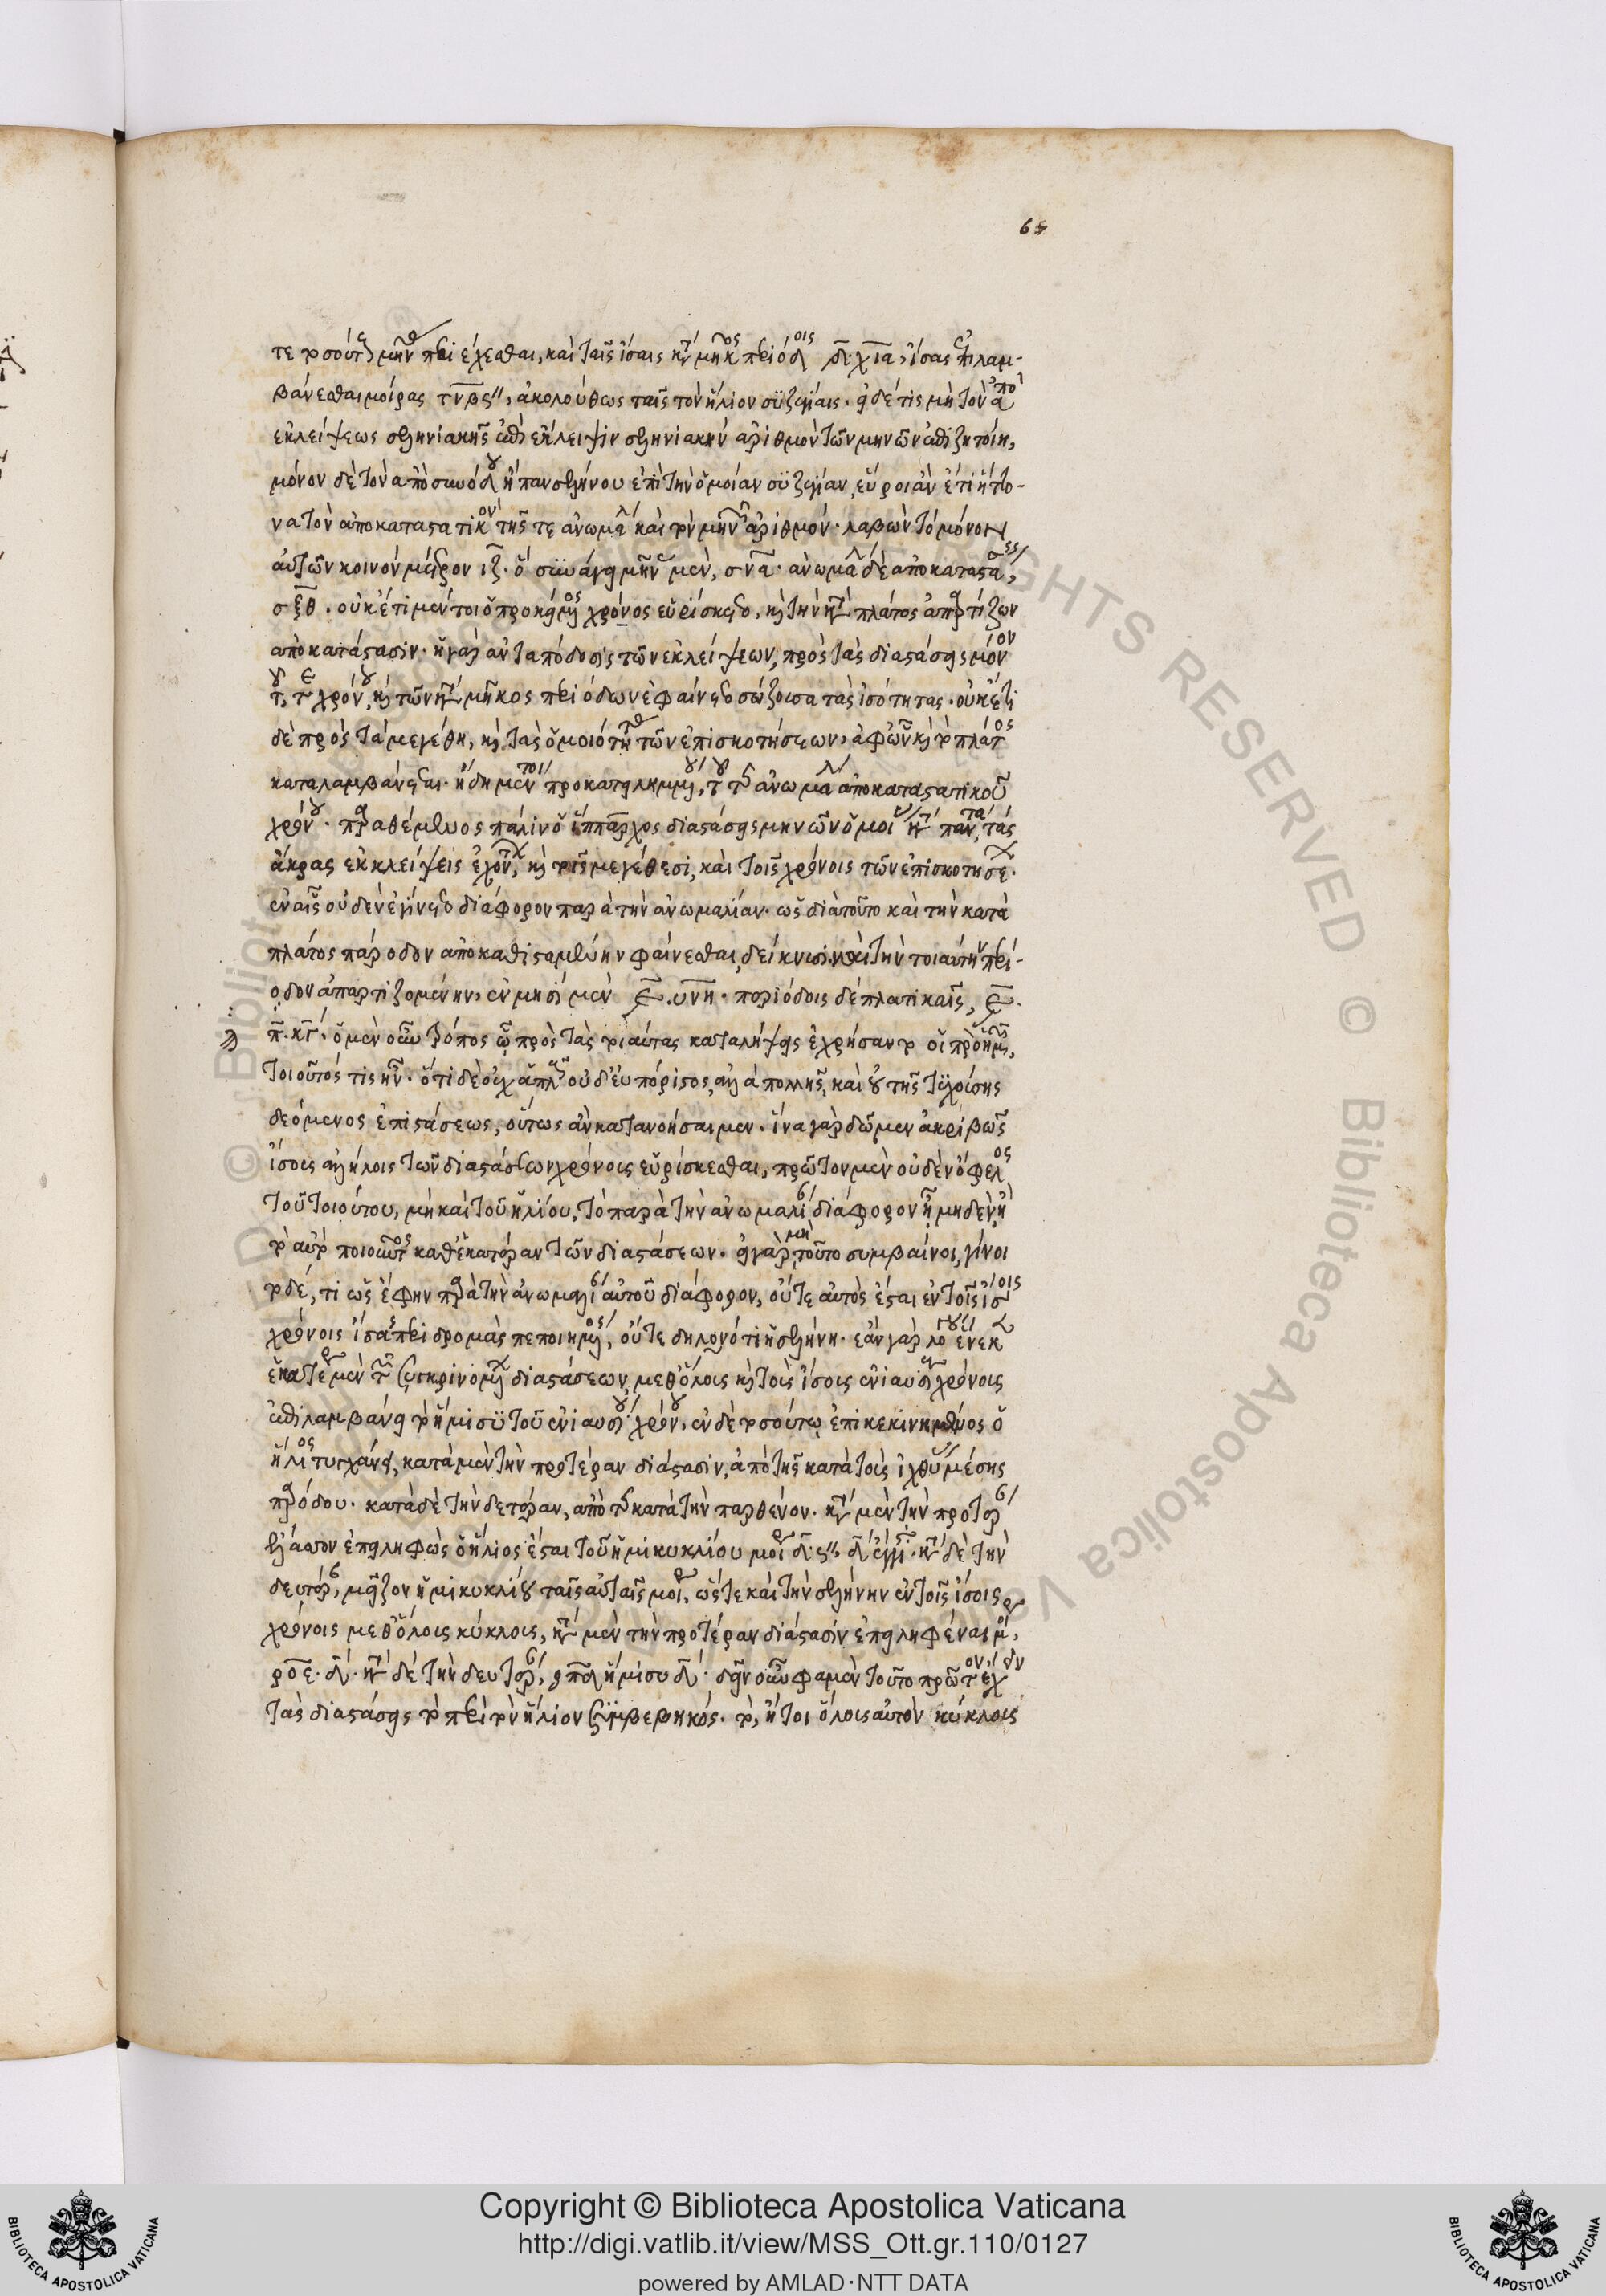 65
τε τοσούτοις μηνῶν περιέχεσθαι, καὶ ταῖς ἴσαις κατὰ μῆκος περιόδοις δχια, ἴσας ἐπιλαμ-
βάνεσθαι μοίρας τνβς", ἀκολούθως ταῖς τὸν ἥλιον συζυγίαις. εἰ δέ τις μὴ τὸν ἀπὸ
ἐκλείψεως σεληνιακῆς ἐπὶ ἔκλειψιν σεληνιακὴν ἀριθμὸν τῶν μηνῶν ἐπιζητοίη,
μόνον δὲ τὸν ἀπὸ συνόδου ἢ πανσελήνου ἐπὶ τὴν ὁμοίαν συζυγίαν, εὕροι ἂν ἔτι ἥττο-
να τὸν ἀποκαταστατικὸν τῆς τε ἀνωμαλίας καὶ τὸν μηνῶν ἀριθμόν. λαβὼν τὸ μόνον
αὐτῶν κοινὸν μέτρον ιζ. ὃ συνάγει μῆνας μὲν, σνα. ἀνωμαλίας δὲ ἀποκαταστάσεις,
σξθ. οὐκέτι μέντοι ὁ προκείμενος χρόνος εὑρίσκετο, καὶ τὴν κατὰ πλάτος ἀπαρτίζων
ἀποκατάστασιν. ἡ γὰρ ἀνταπόδοσις τῶν ἐκλείψεων, πρὸς τὰς διαστάσεις μόνον
τοῦ τε χρόνου, καὶ τῶν κατὰ μῆκος περιόδων ἐφαίνετο σώζουσα τὰς ἰσότητας. οὐκέτι
δὲ πρὸς τὰ μεγέθη, καὶ τὰς ὁμοιότητας τῶν ἐπισκοτήσεων, ἀφ' ὧν καὶ τὸ πλάτος
καταλαμβάνεται. ἤδη μέντοι προκατειλημμένου, τοῦ τῆς ἀνωμαλίας ἀποκαταστατικοῦ
χρόνου. παραθέμενος πάλιν ὁ ἵππαρχος διαστάσεις μηνῶν ὁμοίας κατὰ πάντα, τὰς
ἄκρας ἐκλείψεις ἐχόντων, καὶ τοῖς μεγέθεσι, καὶ τοῖς χρόνοις τῶν ἐπισκοτήσεων.
ἐν αἷς οὐδὲν ἐγίνετο διάφορον παρὰ τὴν ἀνωμαλίαν. ὡς διὰ τοῦτο καὶ τὴν κατὰ
πλάτος πάροδον ἀποκαθισταμένην φαίνεσθαι, δείκνυσιν καὶ τὴν τοιαύτην περί-
οδον ἀπαρτιζομένην, ἐν μησὶ μὲν ε.υνη. περιόδοις δὲ πλατικαῖς, ε.
π.κγ. ὁ μὲν οὖν τρόπος ᾧ πρὸς τὰς τοιαύτας καταλήψεις ἐχρήσαντο οἱ πρὸ ἡμῶν,
τοιοῦτός τις ἦν. ὅτι δὲ οὐχ ἁπλοῦς οὐδ' εὐπόριστος, ἀλλὰ πολλῆς, καὶ οὐ τῆς τυχούσης
δεόμενος ἐπιστάσεως, οὕτως ἂν κατανοήσαιμεν. ἵνα γὰρ δῶμεν ἀκριβῶς
ἴσους ἀλλήλοις τῶν διαστάσεων χρόνους εὑρίσκεσθαι, πρῶτον μὲν οὐδὲν ὄφελος
τοῦ τοιούτου, μὴ καὶ τοῦ ἡλίου, τὸ παρὰ τὴν ἀνωμαλίαν διάφορον ἢ μηδὲν, ἢ
τὸ αὐτὸ ποιοῦντος καθ' ἑκατέραν τῶν διαστάσεων. εἰ γὰρ μὴ τοῦτο συμβαίνοι, γίνοι
το δέ, τι ὡς ἔφην παρὰ τὴν ἀνωμαλίαν αὐτοῦ διάφορον, οὔτε αὐτὸς ἔσται ἐν τοῖς ἴσοις
χρόνοις ἴσας περιδρομὰς πεποιημένος, οὔτε δηλονότι ἡ σελήνη. ἐὰν γὰρ λόγου ἕνεκα
ἑκατέρα μὲν τῶν συγκρινομένων διαστάσεων, μεθ' ὅλους καὶ τοὺς ἴσους ἐνιαυσίους χρόνους
ἐπιλαμβάνῃ τὸ ἥμισυ τοῦ ἐνιαυσίου χρόνου, ἐν δὲ τοσούτῳ ἐπικεκινημένος ὁ
ἥλιος τυγχάνῃ, κατὰ μὲν τὴν προτέραν διάστασιν, ἀπὸ τῆς κατὰ τοὺς ἰχθύας μέσης
παρόδου. κατὰ δὲ τὴν δευτέραν, ἀπὸ τῆς κατὰ τὴν παρθένον. κατὰ μὲν τὴν προτέραν
ἔλασσον ἐπειληφὼς ὁ ἥλιος ἔσται τοῦ ἡμικυκλίου μοίραις δ:ς", δ' ἔγγιστα. κατὰ δὲ τὴν
δευτέραν, μεῖζον ἡμικυκλίου ταῖς αὐταῖς μοίραις, ὥστε καὶ τὴν σελήνην ἐν τοῖς ἴσοις
χρόνοις μεθ' ὅλους κύκλους, κατὰ μὲν τὴν προτέραν διάστασιν ἐπειληφέναι μοίρας,
ροε. δ'. κατὰ δὲ τὴν δευτέραν, ρπδ ἥμισυ δ'. δεῖν οὖν φαμὲν τοῦτο πρῶτον ἔχειν
τὰς διαστάσεις τὸ περὶ τὸν ἥλιον συμβεβηκός. τὸ, ἤτοι ὅλους αὐτὸν κύκλους
Copyright © Biblioteca Apostolica Vaticana
http://digi.vatlib.it/view/MSS_Ott.gr.110/0127
powered by AMLAD·NTT DATA
BIBLIOTECA APOSTOLICA VATICANA
BIBLIOTECA APOSTOLICA VATICANA